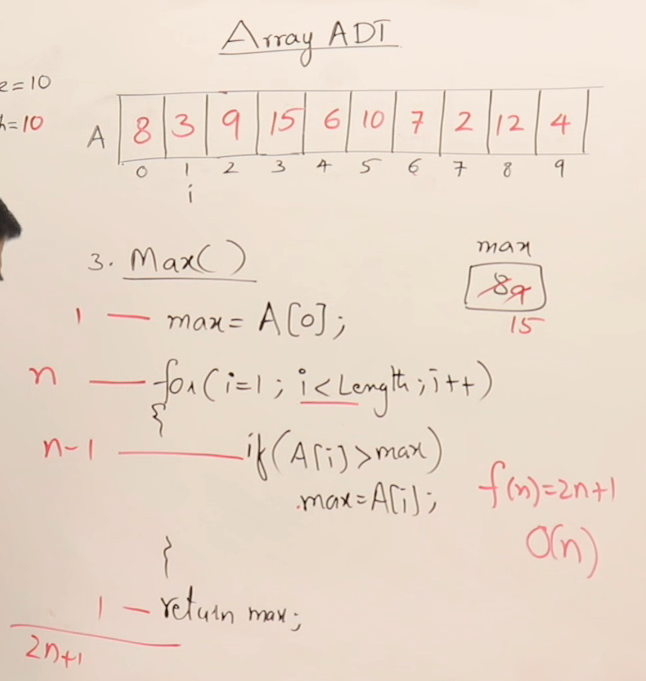 Array ADT
e=10
h=10
A 8 3 9 15 6 10 7 2 12 4
0 1 2 3 4 5 6 7 8 9
i
3. Max()
max
89
15
1 — max = A[0];
n — for(i=1; i<Length; i++)
{
n-1 — if(A[i]>max)
max=A[i];
f(n)=2n+1
O(n)
}
1 — return max;
2n+1